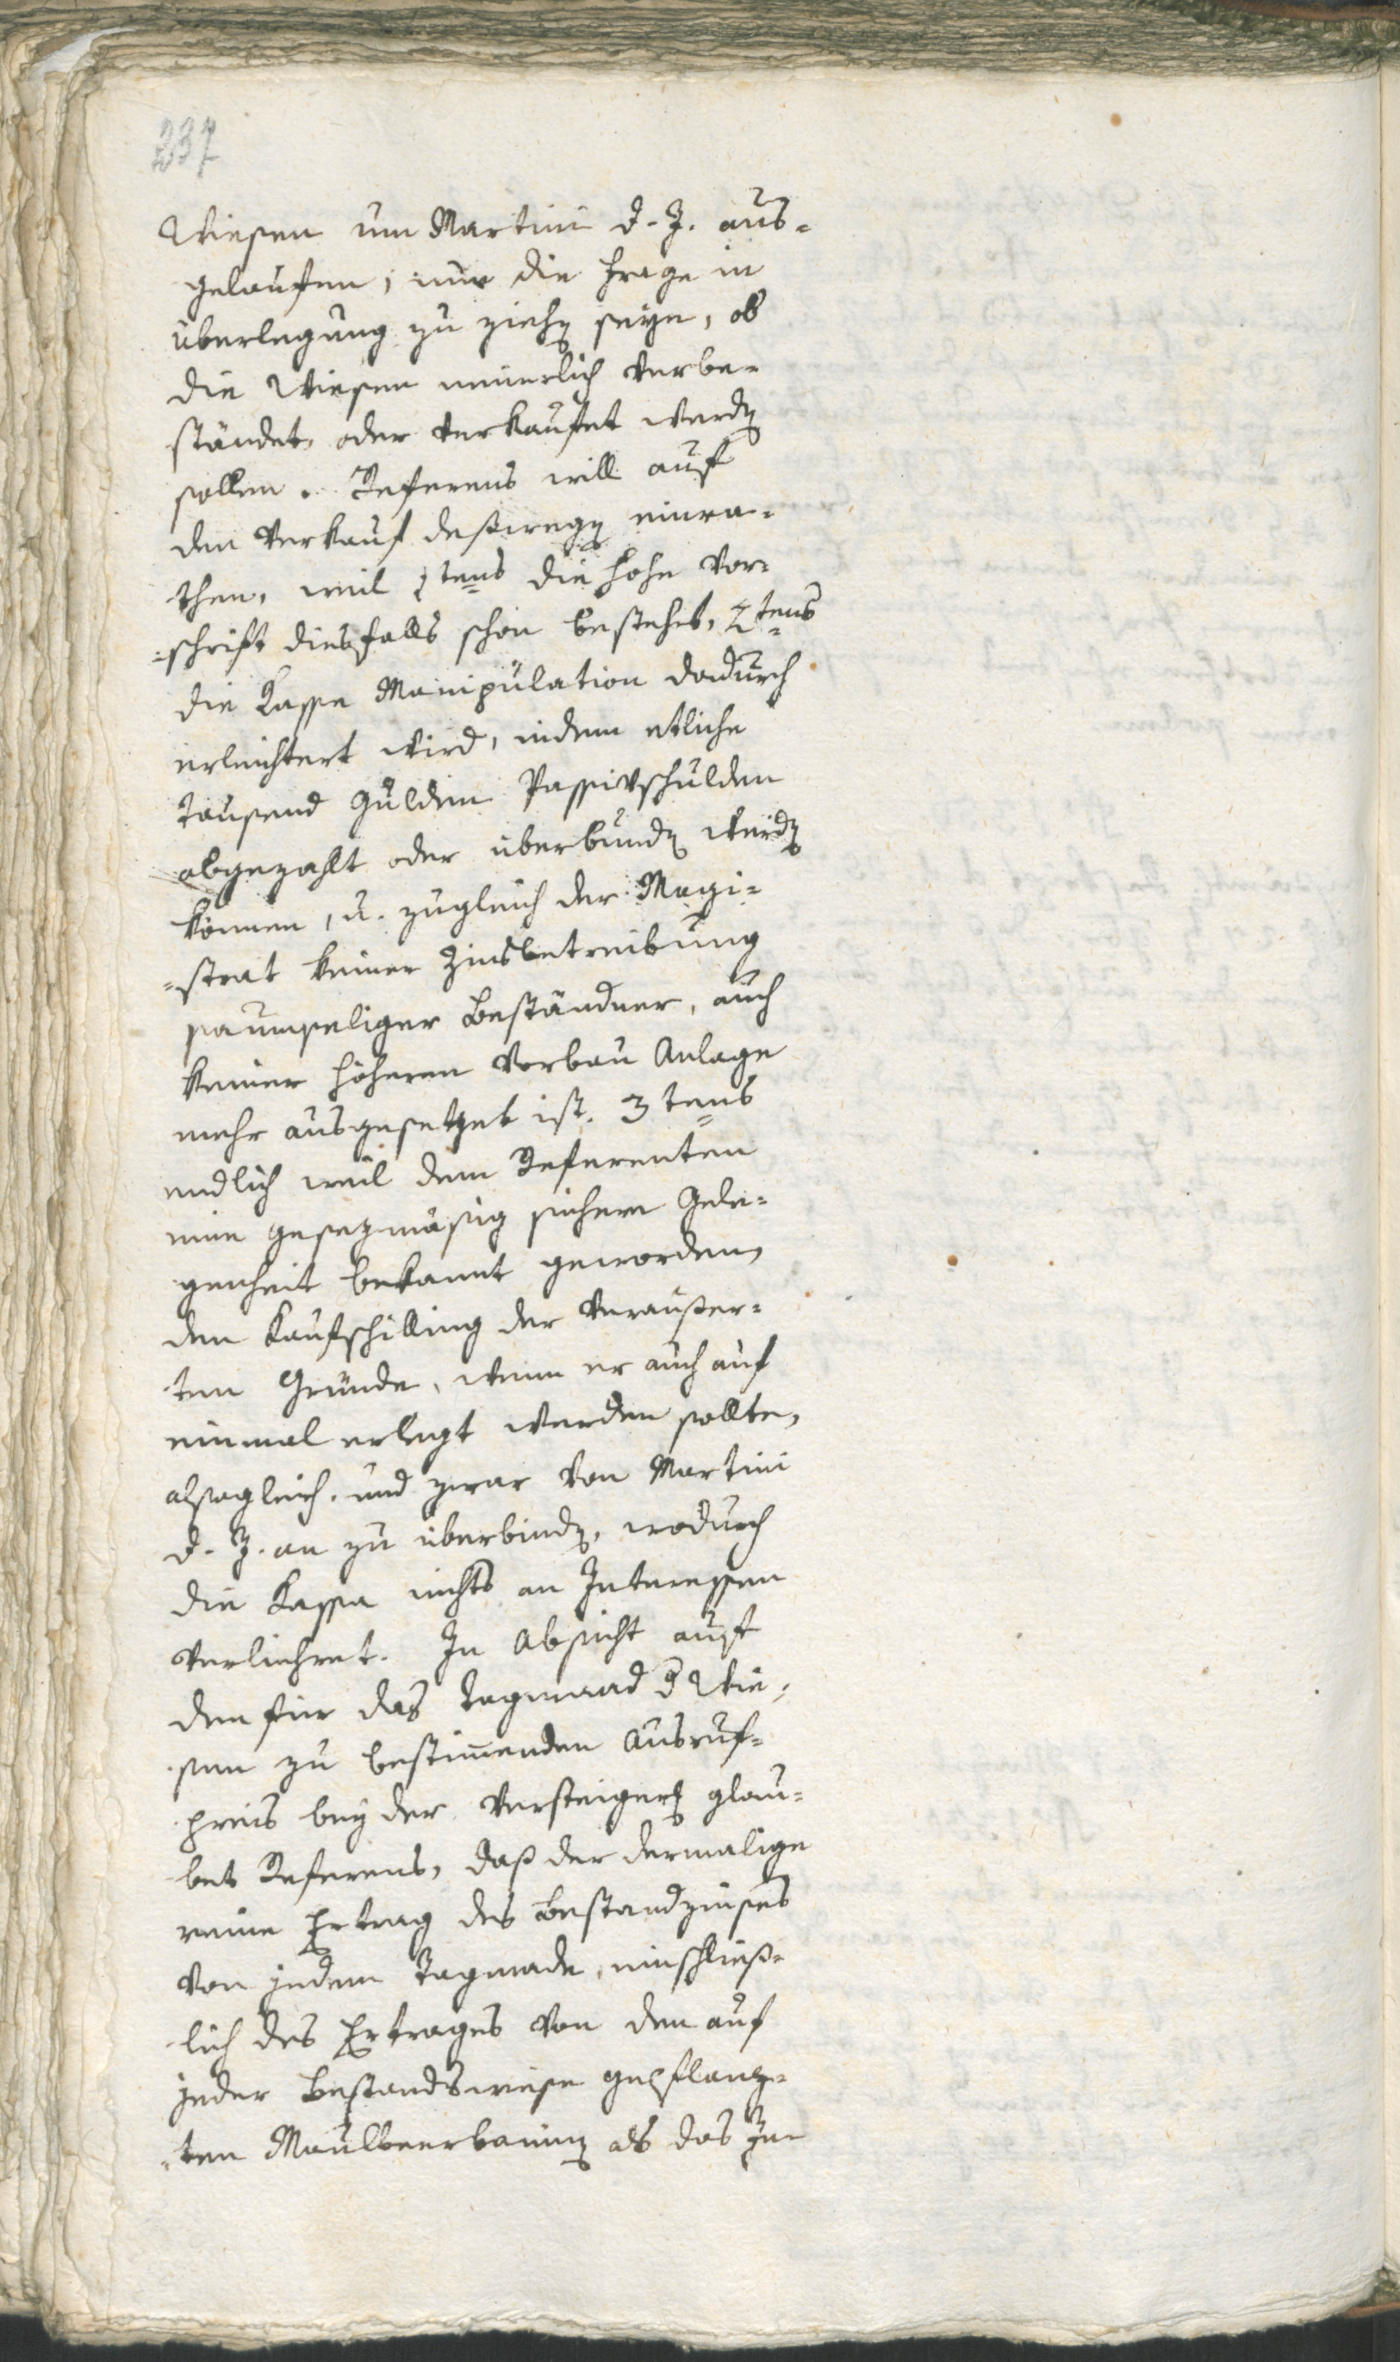 237
Wiesen um Martini d. J. aus-
gelaufen, nur die Frage in
überlegung zu ziehen seye, ob
die Wiesen neuerlich verbe-
ständet, oder verkaufet werden
sollen. Referens will auf
den Verkauf desswegen einra-
then, weil 1tens die hohe Vor-
=schrift diesfalls schon bestehet, 2tens
die Kasse Manipulation dadurch
erleichtert wird, indem etliche
tausend Gulden Passivschulden
abgezahlt oder überbunden werden
können, u. zugleich der Magi=
=strat keiner Zinsbetreibung
saumseliger Beständner, auch
keiner höheren Verbau Anlage
mehr ausgesetzet ist. 3tens
endlich weil dem Referenten
eine gesezmäsig sichere Gele=
genheit bekannt geworden,
den Kaufschilling der veräußer=
ten Gründe, wenn er auch auf
einmal erlegt werden sollte,
alsogleich, und zwar von Martini
d. J. an zu überbinden, wodurch
die Kassa nichts an Interessen
verliehret. In Absicht auf
den für das Tagmaad d Wie=
sen zu bestimmenden Ausruf=
preis bey der Versteigerung glau=
bet Referens, daß der dermalige
reine Ertrag des Bestandzinses
von jedem Tagmade, einschließ=
lich des Ertrages von den auf
jeder Bestandswiese gepflanz=
=ten Maulbeerbäumen als das In=